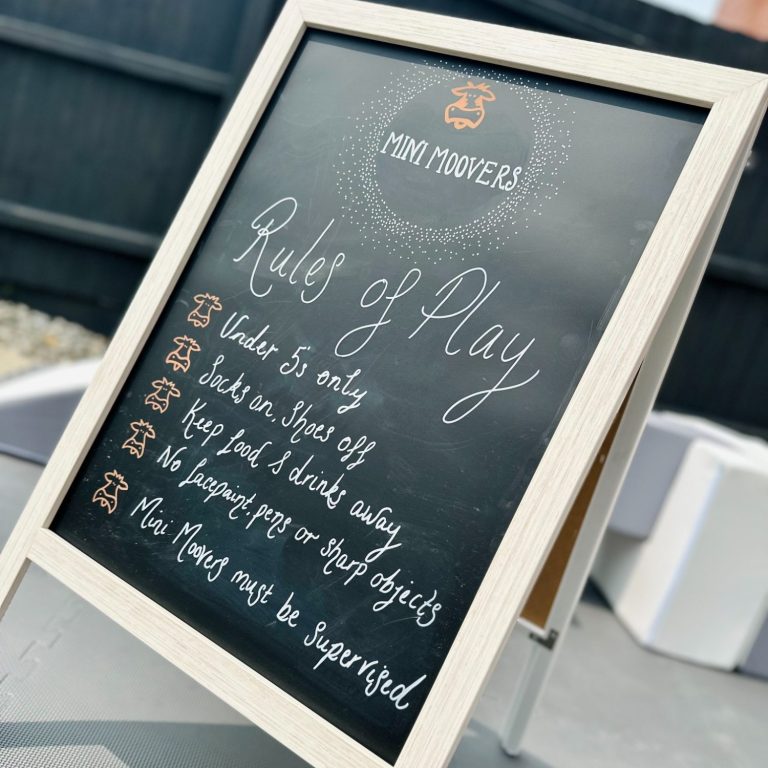 MINI MOOVERS
Rules of Play
Under 5's only
Socks on, Shoes off
Keep food & drinks away
No facepaint, pens or sharp objects
Mini Moovers must be supervised